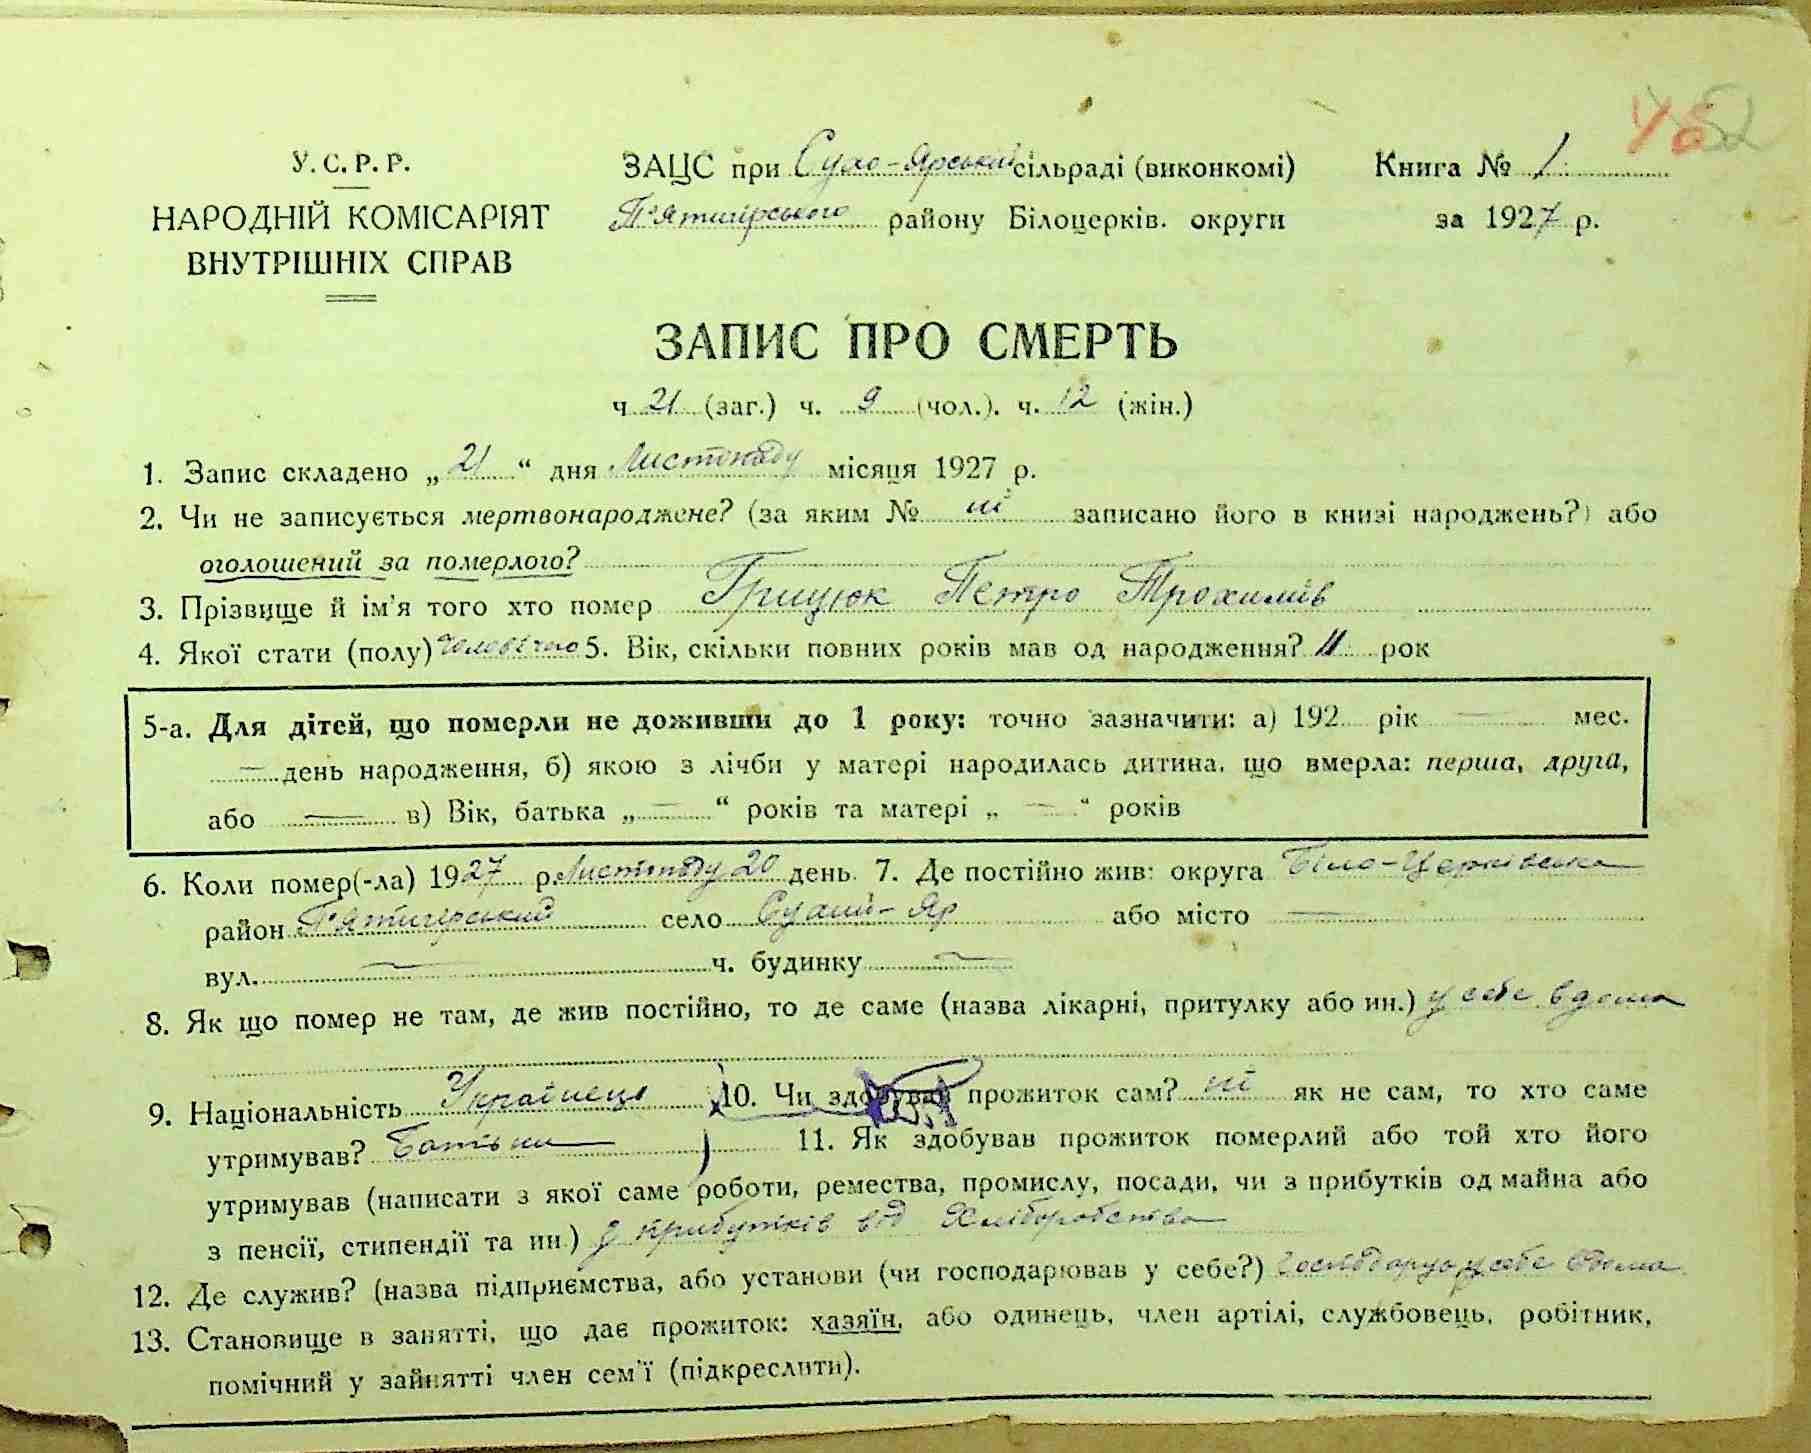 У. С. Р. Р.
НАРОДНІЙ КОМІСАРІЯТ
ВНУТРІШНІХ СПРАВ
ЗАЦС при Сухо-Ярський сільраді (виконкомі)
П'ятигірського району Білоцерків. округи
Книга № 1
за 1927 р.
ЗАПИС ПРО СМЕРТЬ
ч 21 (заг.) ч. 9 (чол.). ч. 12 (жін.)
1. Запис складено „ 21 “ дня Листопаду місяця 1927 р.
2. Чи не записується мертвонароджене? (за яким № ні записано його в книзі народжень?) або
оголошений за померлого?
3. Прізвище й ім'я того хто помер Грицюк Петро Трохимів
4. Якої стати (полу) 5. Вік, скільки повних років мав од народження? 11 рок
5-а. Для дітей, що померли не доживши до 1 року: точно зазначити: а) 192 рік — мес.
— день народження, б) якою з лічби у матері народилась дитина, що вмерла: перша, друга,
або — в) Вік, батька „ — “ років та матері „ — “ років
6. Коли помер(-ла) 1927 р. Листопаду 20 день. 7. Де постійно жив: округа Біло-Церківська
район П'ятигірський село Сухий-Яр або місто —
вул. — ч. будинку —
8. Як що помер не там, де жив постійно, то де саме (назва лікарні, притулку або ин.) у себе вдома
9. Національність Українець 10. Чи здобував прожиток сам? ні як не сам, то хто саме
утримував? Батьки 11. Як здобував прожиток померлий або той хто його
утримував (написати з якої саме роботи, ремества, промислу, посади, чи з прибутків од майна або
з пенсії, стипендії та ин.) з прибутків від Хліборобства
12. Де служив? (назва підприємства, або установи (чи господарював у себе?) у себе вдома
13. Становище в занятті, що дає прожиток: хазяїн, або одинець, член артілі, службовець, робітник,
помічний у зайнятті член сем'ї (підкреслити).